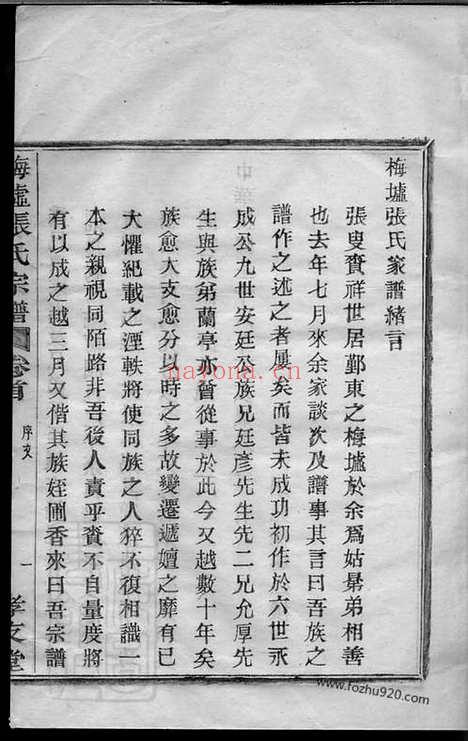 梅墟張氏家譜緒言
張叟賚祥世居鄞東之梅墟於余爲姑舅弟相善
也去年七月來余家談次及譜事其言曰吾族之
譜作之述之者屢矣而皆未成功初作於六世永
成公九世安廷公族兄廷彥先生先二兄允厚先
生與族弟蘭亭亦嘗從事於此今又越數十年矣
族愈大支愈分以時之多故變遷遞嬗之靡有已
大懼紀載之湮軼將使同族之人猝不復相識一
本之親視同陌路非吾後人責乎賚不自量度將
有以成之越三月又偕其族姪圃香來曰吾宗譜
梅墟張氏宗譜 卷首 序文 一 孝友堂
nayona.cn
www.fozhu920.com